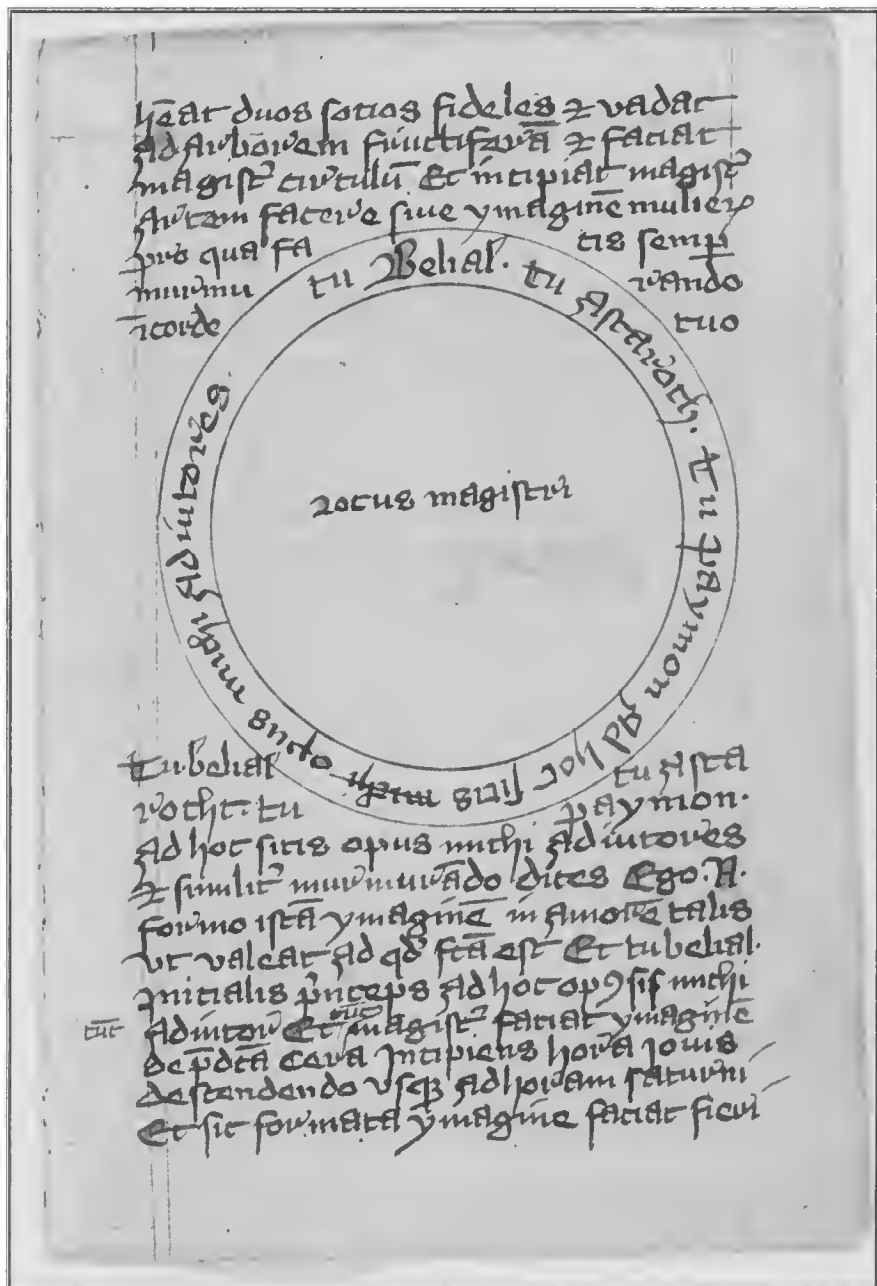 hēat duos sotios fideles & vadat
ad arborem fructiferā & faciat
magistꝰ circulū Et incipiat magistꝰ
artem facere siue ymaginē mulierꝝ
pro qua fa tis semꝑ
murmu rando
ī corde tuo
tu Belial. tu Astaroth. Tu paymon ad hoc sitis michi opus michi adiutores.
Locus magistri
Tu belial tu asta
rocht. tu paymon.
ad hoc sitis opus michi adiutores
& similit̉ murmurādo dices Ego. N.
formo istā ymaginē in amorē talis
vt valeat ad qd̛ fctā est Et tu belial.
Initialis p̄nceps ad hoc opꝰ sis michi
tūc adiutor Et magist̉ faciat ymaginē
de p̄dctā cera Incipiens hora Iouis
descendendo vsqꝫ ad horam saturni
Et sic formata ymagine faciat fieri